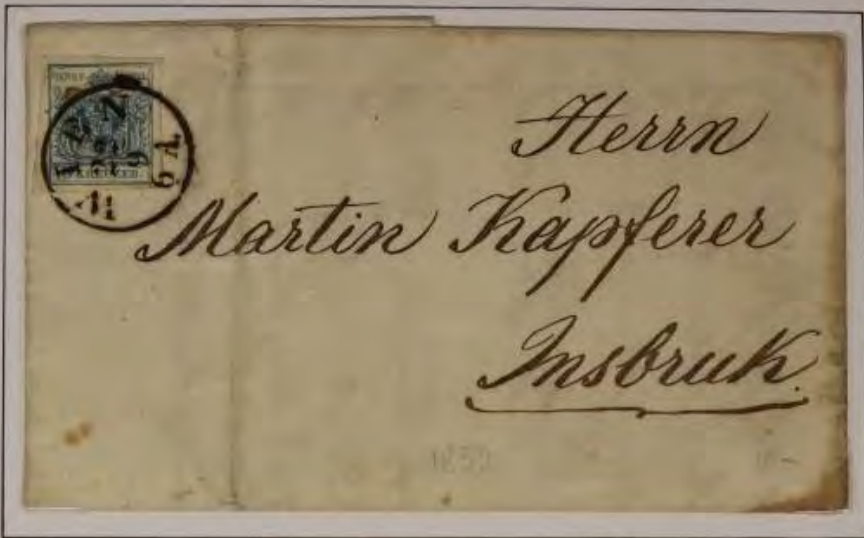 WIEN
Herrn
Martin Kapferer
Insbruk.